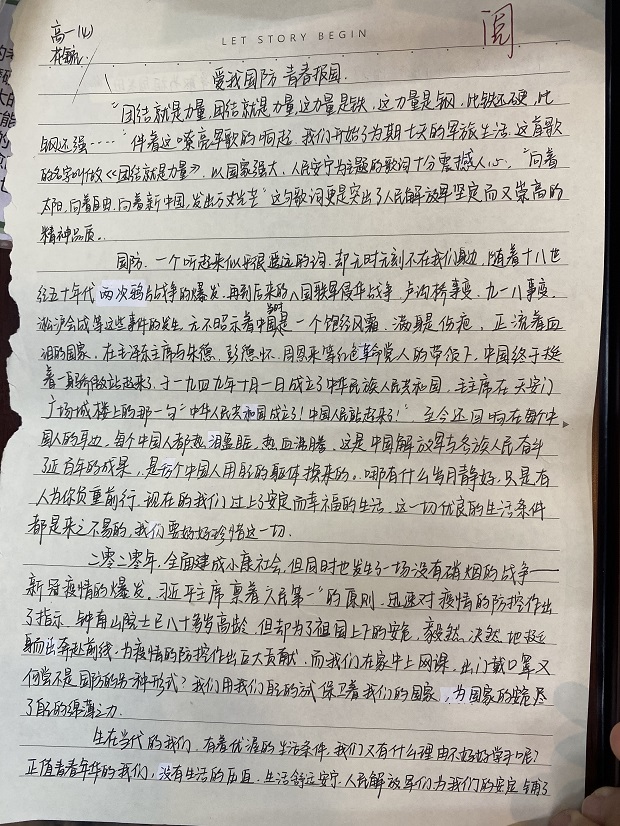 高一(4)
LET STORY BEGIN
阅
爱我国防 青春报国.
"团结就是力量,团结就是力量,这力量是铁,这力量是钢,比铁还硬,比
钢还强……"伴着这嘹亮军歌的响起,我们开始了为期七天的军旅生活.这首歌
的名字叫做《团结就是力量》,以国家强大,人民安宁为主题的歌词十分震撼人心."向着
太阳,向着自由,向着新中国,发出万丈光芒"这句歌词更是突出了人民解放军坚定而又崇高的
精神品质.
国防,一个听起来似乎很遥远的词,却无时无刻不在我们身边,随着十八世
纪五十年代两次鸦片战争的爆发,再到后来的八国联军侵华战争,卢沟桥事变,九一八事变,
淞沪会战等这些事件的发生,无不昭示着当时中国是一个饱经风霜,满身是伤疤,正流着血
泪的国家,在毛泽东主席与朱德,彭德怀,周恩来等红色革命党人的带领下,中国终于挺
着一身站起来了,于一九四九年十月一日成立了中华民族人民共和国,主席在天安门
广场城楼上的那一句"中华人民共和国成立了!中国人民站起来了!"至今还回响在每个中
国人的耳边,每个中国人都热泪盈眶,热血沸腾,这是中国解放军与各族人民奋斗
了近百年的成果,是个中国人用自己的躯体换来的。哪有什么岁月静好,只是有
人为你负重前行.现在的我们过上了安定而幸福的生活,这一切优良的生活条件
都是来之不易的,我们要好好珍惜这一切.
二零二零年,全面建成小康社会,但同时也发生了一场没有硝烟的战争——
新冠疫情的爆发.习近平主席禀着"人民第一"的原则,迅速对疫情的防控作出
了指示,钟南山院士已八十多岁高龄,但却为了祖国上下的安危,毅然、决然地挺
身而出奔赴前线,为疫情的防控作出巨大贡献,而我们在家中上网课,出门戴口罩又
何尝不是国防的另一种形式?我们用我们自己的方式保卫着我们的国家,为国家的安危尽
了自己的绵薄之力.
生在当代的我们,有着优渥的生活条件,我们又有什么理由不好好学习呢?
正值青春年华的我们,没有生活的压迫,生活舒适安宁,人民解放军们为我们的安定铺了